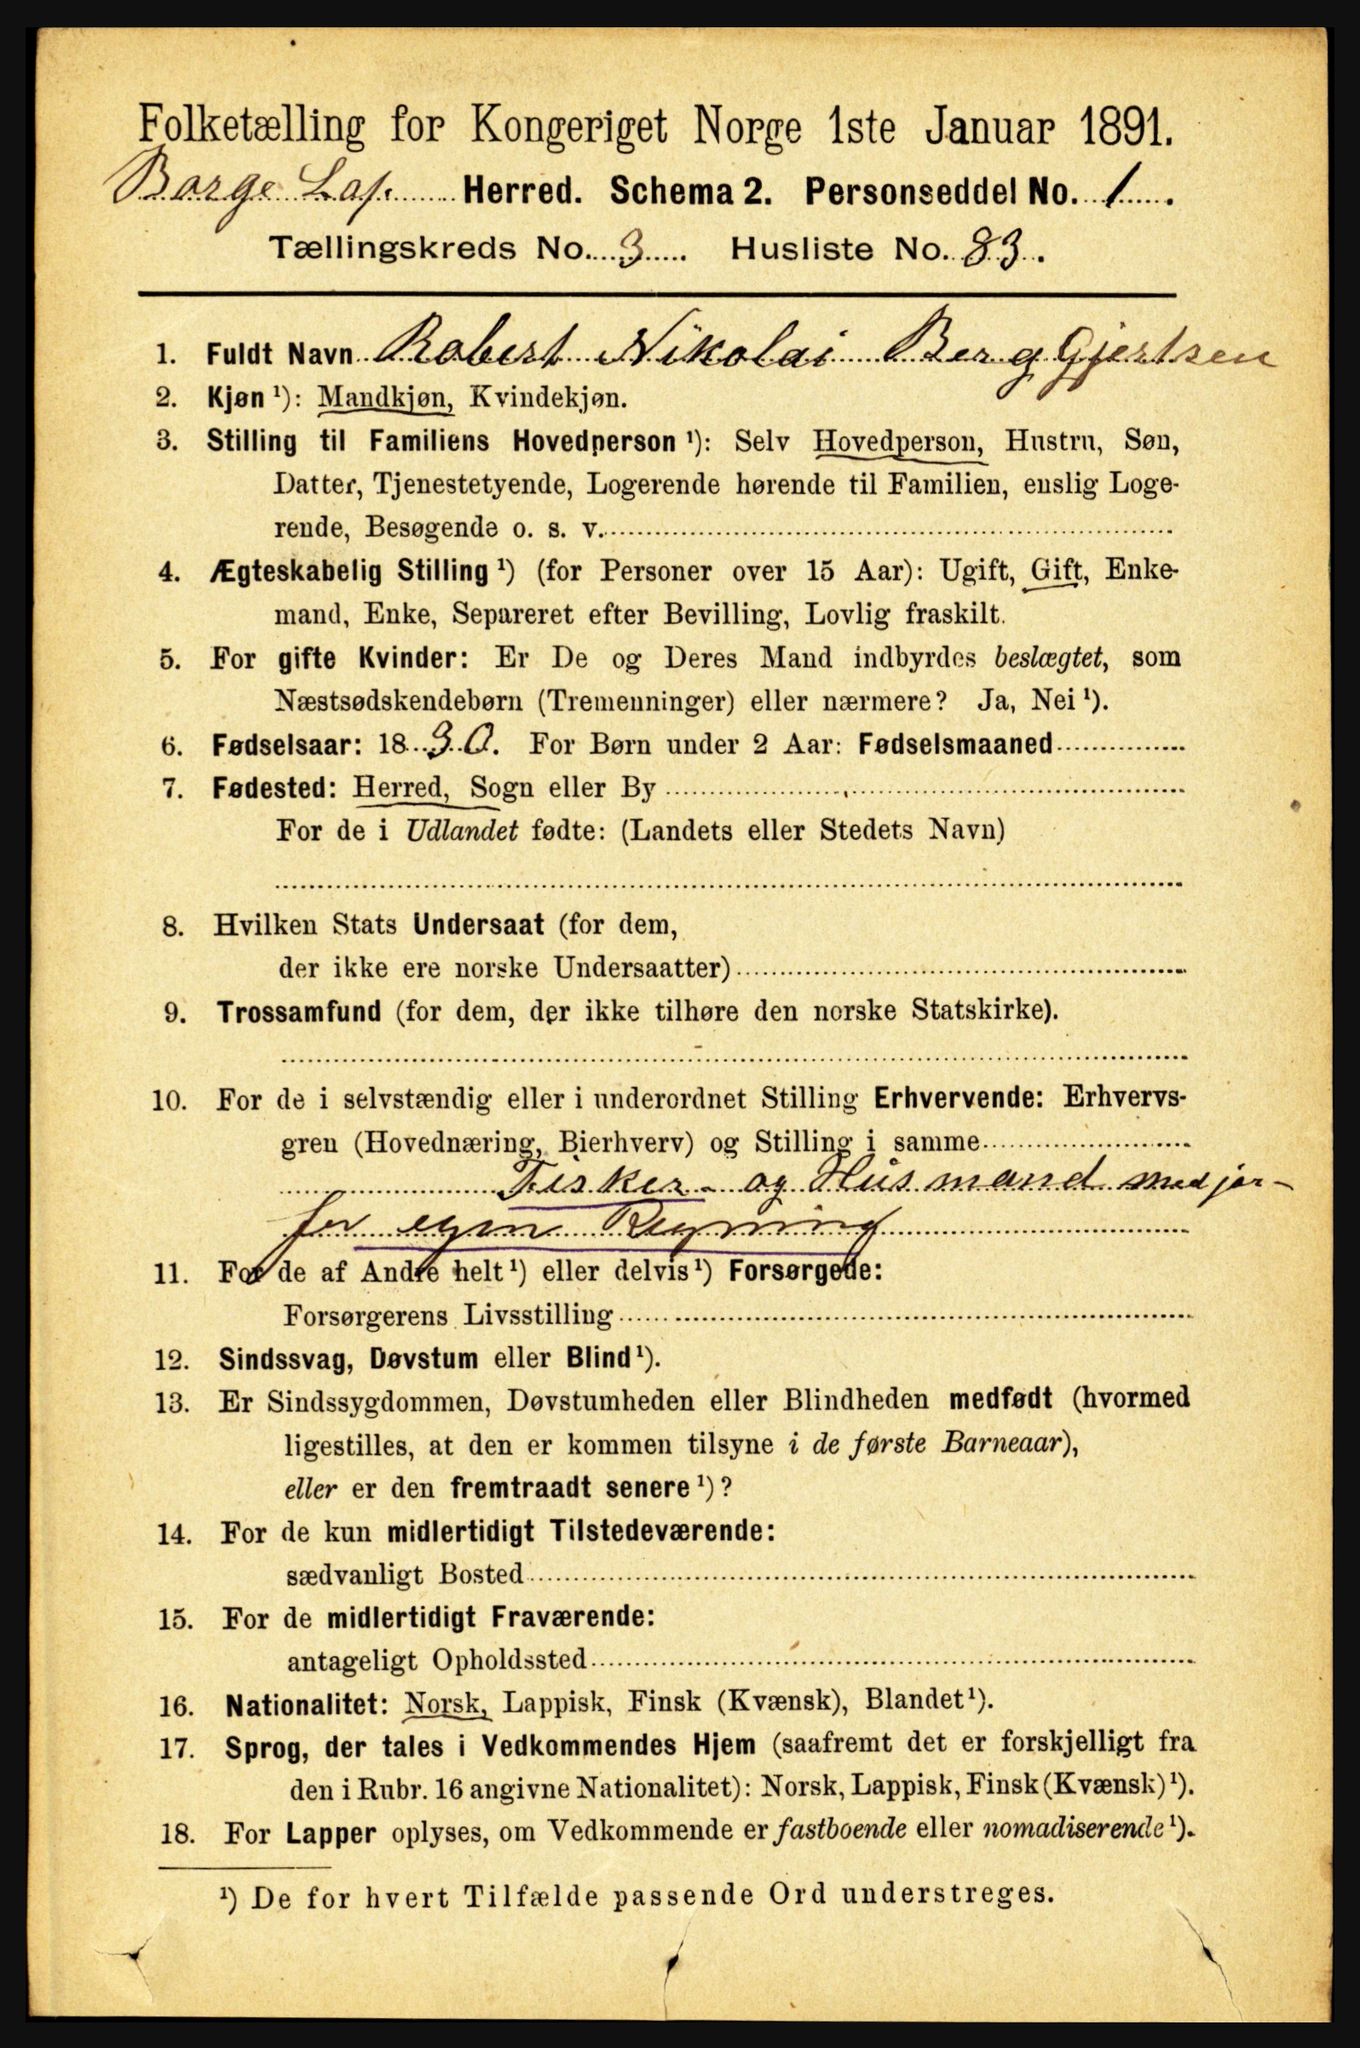 Folketælling for Kongeriget Norge 1ste Januar 1891.
Borge Lof. Herred. Schema 2. Personseddel No. 1.
Tællingskreds No. 3. Husliste No. 83.
1. Fuldt Navn Robert Nikolai Berg Gjertsen
2. Kjøn ¹): Mandkjøn, Kvindekjøn.
3. Stilling til Familiens Hovedperson ¹): Selv Hovedperson, Hustru, Søn,
Datter, Tjenestetyende, Logerende hørende til Familien, enslig Loge-
rende, Besøgende o. s. v.
4. Ægteskabelig Stilling ¹) (for Personer over 15 Aar): Ugift, Gift, Enke-
mand, Enke, Separeret efter Bevilling, Lovlig fraskilt.
5. For gifte Kvinder: Er De og Deres Mand indbyrdes beslægtet, som
Næstsødskendebørn (Tremenninger) eller nærmere? Ja, Nei ¹).
6. Fødselsaar: 1830. For Børn under 2 Aar: Fødselsmaaned
7. Fødested: Herred, Sogn eller By
For de i Udlandet fødte: (Landets eller Stedets Navn)
8. Hvilken Stats Undersaat (for dem,
der ikke ere norske Undersaatter)
9. Trossamfund (for dem, der ikke tilhøre den norske Statskirke).
10. For de i selvstændig eller i underordnet Stilling Erhvervende: Erhvervs-
gren (Hovednæring, Bierhverv) og Stilling i samme
Fisker og Husmand med jor-
for egen Regning
11. For de af Andre helt ¹) eller delvis ¹) Forsørgede:
Forsørgerens Livsstilling
12. Sindssvag, Døvstum eller Blind ¹).
13. Er Sindssygdommen, Døvstumheden eller Blindheden medfødt (hvormed
ligestilles, at den er kommen tilsyne i de første Barneaar),
eller er den fremtraadt senere ¹)?
14. For de kun midlertidigt Tilstedeværende:
sædvanligt Bosted
15. For de midlertidigt Fraværende:
antageligt Opholdssted
16. Nationalitet: Norsk, Lappisk, Finsk (Kvænsk), Blandet ¹).
17. Sprog, der tales i Vedkommendes Hjem (saafremt det er forskjelligt fra
den i Rubr. 16 angivne Nationalitet): Norsk, Lappisk, Finsk (Kvænsk) ¹).
18. For Lapper oplyses, om Vedkommende er fastboende eller nomadiserende ¹).
¹) De for hvert Tilfælde passende Ord understreges.